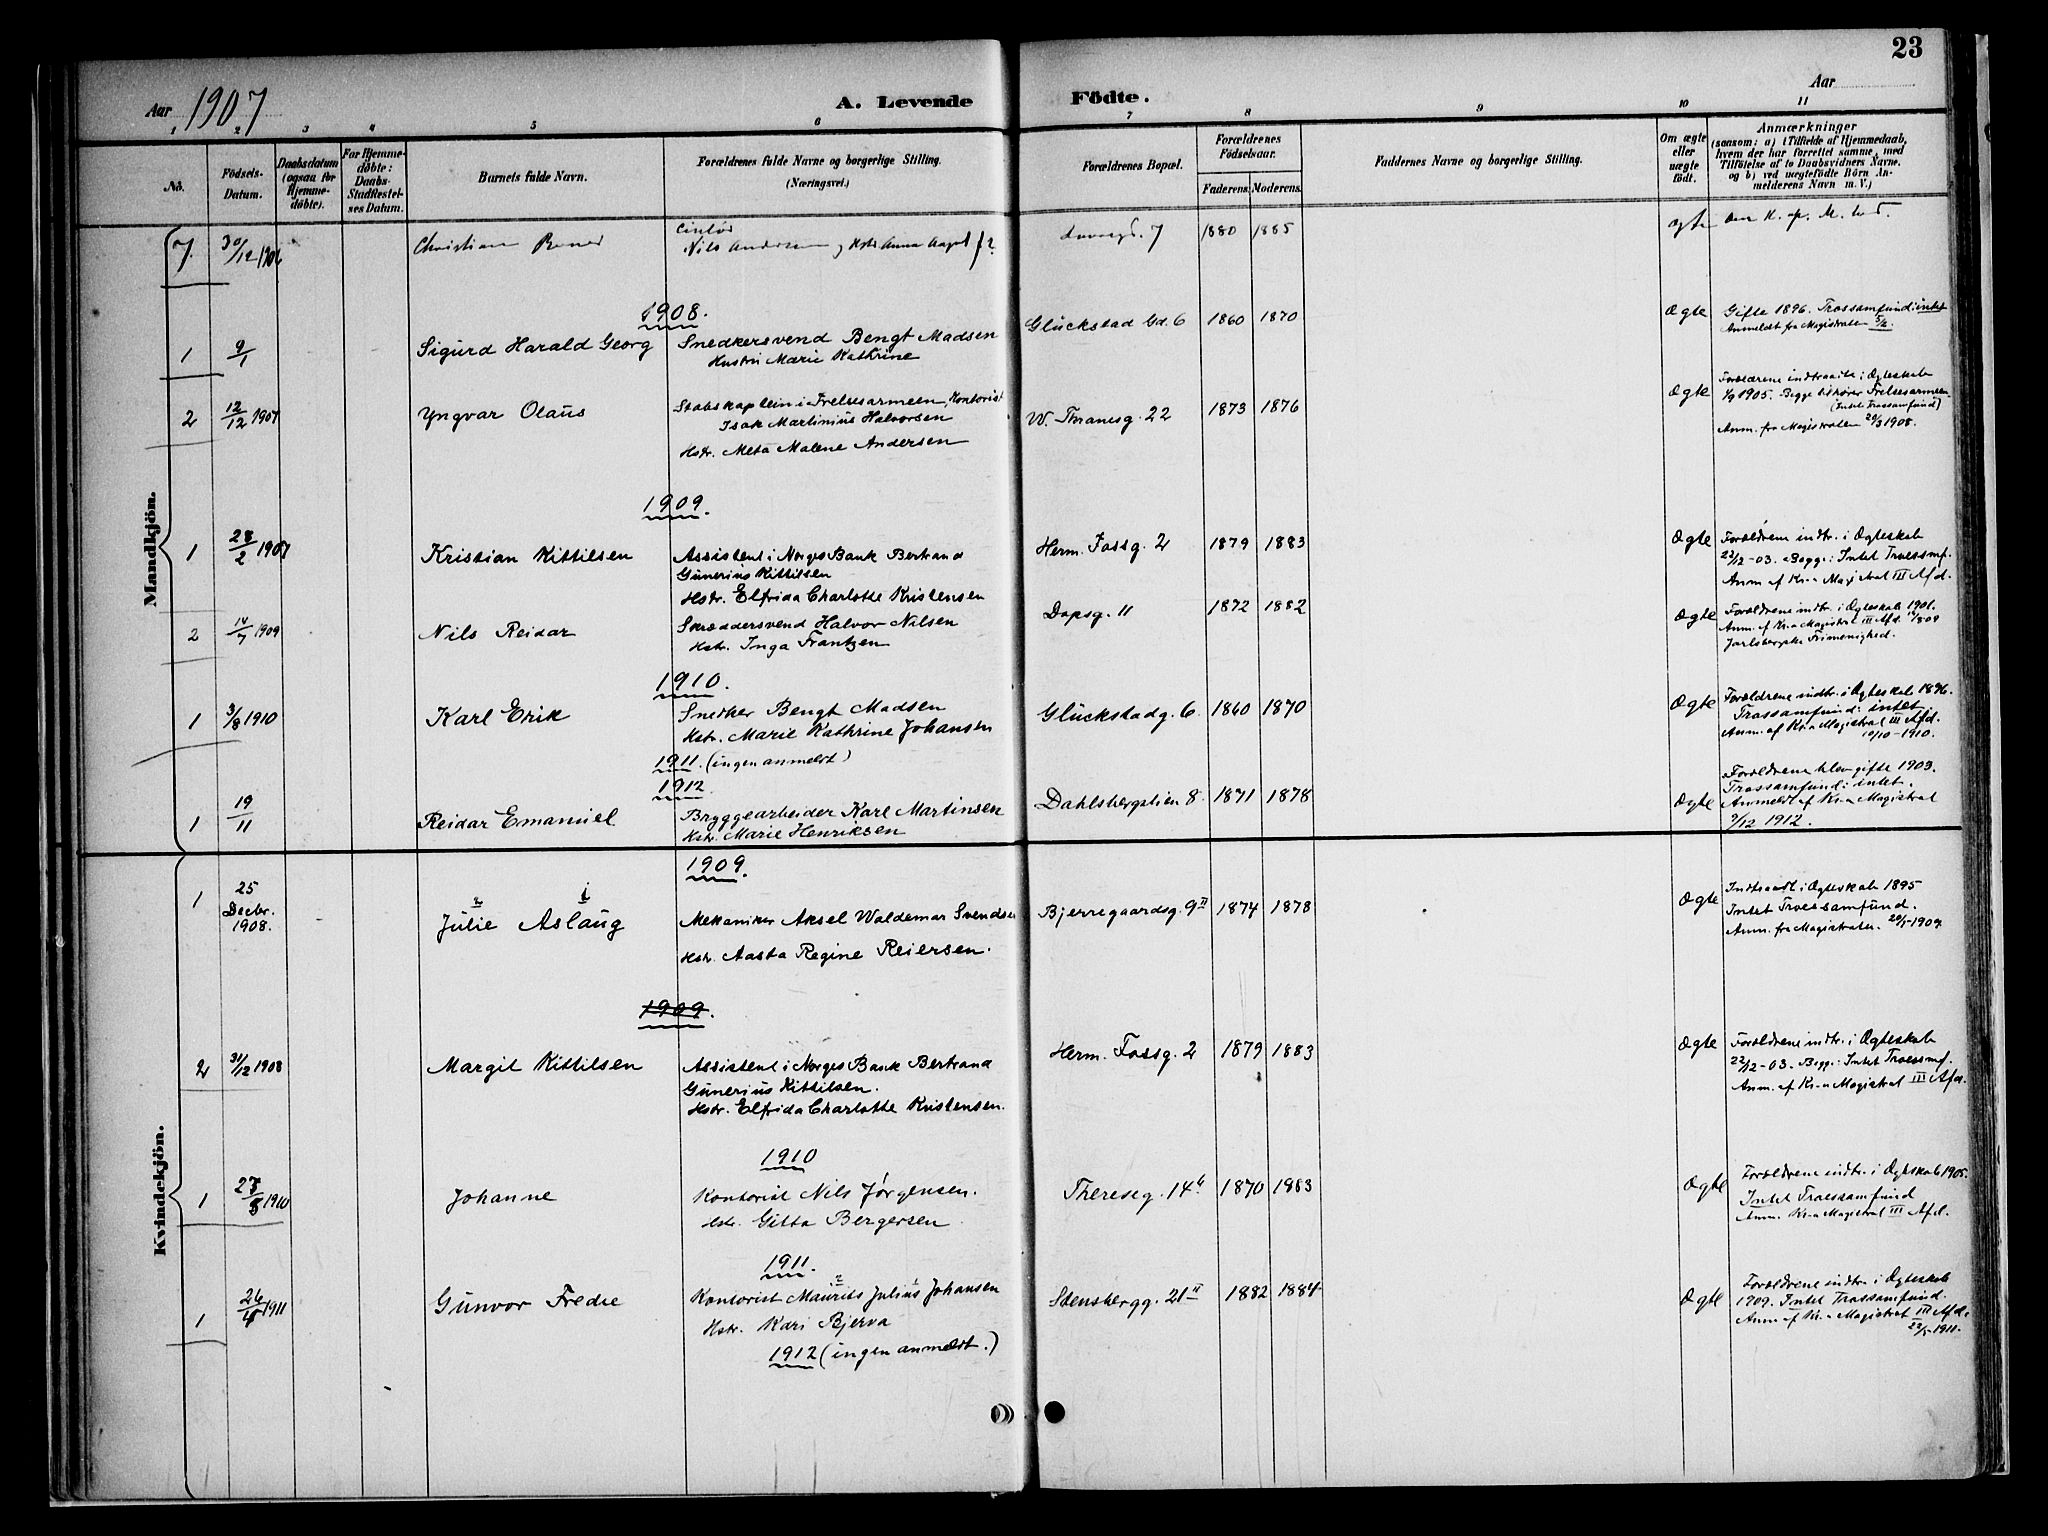 23
Aar 1907
A. Levende Födte.
Aar
1 2 3 4 5 6 7 8 9 10 11
No.
Födsels-Datum.
Daabsdatum (ogsaa for Hjemme-döbte).
For Hjemme-döbte: Daabs-Stadfæstel-ses Datum.
Barnets fulde Navn.
Forældrenes fulde Navne og borgerlige Stilling.
(Næringsvei.)
Forældrenes Bopæl.
Forældrenes Födselsaar.
Faderens. Moderens.
Faddernes Navne og borgerlige Stilling.
Om ægte eller uægte födt.
Anmærkninger
(saasom: a) i Tilfælde af Hjemmedaab,
hvem der har forrettet samme, med
Tilföielse af to Daabsvidners Navne,
og b) ved uægtefödte Börn An-
melderens Navn m. V.)
Mandkjön.
7. 30/12 1906 Christian
Nils Andersen
7 1880 1885 ægte
1908.
1 9/1 Sigurd Harald Georg
Snedkersvend Bengt Madsen
Hustru Marie Kathrine
Glückstad Gd. 6 1860 1870 Ægte
Gifte 1896. Trossamfund: intet
Anmeldt fra Magistraten 5/2.
2 12/12 1907 Yngvar Olaus
Stabskaptein i Frelsesarmeen, Kontorist
Isak Martinius Halvorsen
Hstr. Meta Malene Andersen
W. Thranesg. 22 1873 1876 Ægte
Forældrene indtraadte i Ægteskab
1/9 1905. Begge tilhører Frelsesarmeen
(Intet Trossamfund)
Anm. fra Magistraten 20/3 1908.
1909.
1 28/2 1907 Kristian Kittilsen
Assistent i Norges Bank Bertrand
Gunerius Kittilsen
Hstr. Elfrida Charlotte Kristensen
Herm. Fossg. 2 1879 1883 Ægte
Forældrene indtr. i Ægteskab
22/12-03. Begge: Intet Troessmf.
Anm. af Kr.a Magistrat III Afd.
2 14/7 1909 Nils Reidar
Skræddersvend Halvor Nilsen
Hstr. Inga Frantzen
Dopsg. 11 1872 1882 Ægte
Forældrene indtr. i Ægteskab 1901.
Anm. af Kr.a Magistrat III Afd.
Jarlsbergske Frimenighed.
1910.
1 3/8 1910 Karl Erik
Snedker Bengt Madsen
Hstr. Marie Kathrine Johansen
Glückstadg. 6 1860 1870 Ægte
Forældrene indtr. i Ægteskab 1896.
Trossamfund: intet.
Anm. af Kr.a Magistrat III Afd.
10/10-1910.
1911. (ingen anmeldt)
1912.
1 19/11 Reidar Emanuel
Bryggearbeider Karl Martinsen
Hstr. Marie Henriksen
Dahlsbergstien 8 1871 1878 Ægte
Forældrene blev gifte 1903.
Trossamfund: intet.
Anmeldt af Kr.a Magistrat
9/12 1912.
Kvindekjön.
1909.
1 25 Decbr. 1908. Julie Aslaug
Mekaniker Aksel Waldemar Svendsen
Hstr. Aasta Regine Reiersen.
Bjerregaardsg. 9 II 1874 1878 Ægte
Indtraadt i Ægteskab 1895
Intet Troessamfund.
Anm. fra Magistraten. 20/1-1909.
1909.
2 31/12 1908 Margit Kittilsen
Assistent i Norges Bank Bertrand
Gunerius Kittilsen.
Hstr. Elfrida Charlotte Kristensen.
Herm. Fossg. 2 1879 1883 Ægte
Forældrene indtr. i Ægteskab
22/12-03. Begge: Intet Troessmf.
Anm. af Kr.a Magistrat III Afd.
1910
1 1910 Johanne
Kontorist Nils Jørgensen.
Hstr. Gitta Bergersen
Theresesg. 14 1870 1983 Ægte
Forældrene indtr. i Ægteskab 1905.
Intet Troessamfund
Anm. Kr.a Magistrat III Afd.
1911.
1 26/4 1911 Gunvor Fredie
Kontorist Maurits Julius Johansen
Hstr. Kari Bjerva
Stensbergg. 21 II 1882 1884 Ægte
Forældrene indtr. i Ægteskab
1909. Intet Trossamfund.
Anm. af Kr.a Magistrat III Afd.
22/5-1911.
1912 (ingen anmeldt.)